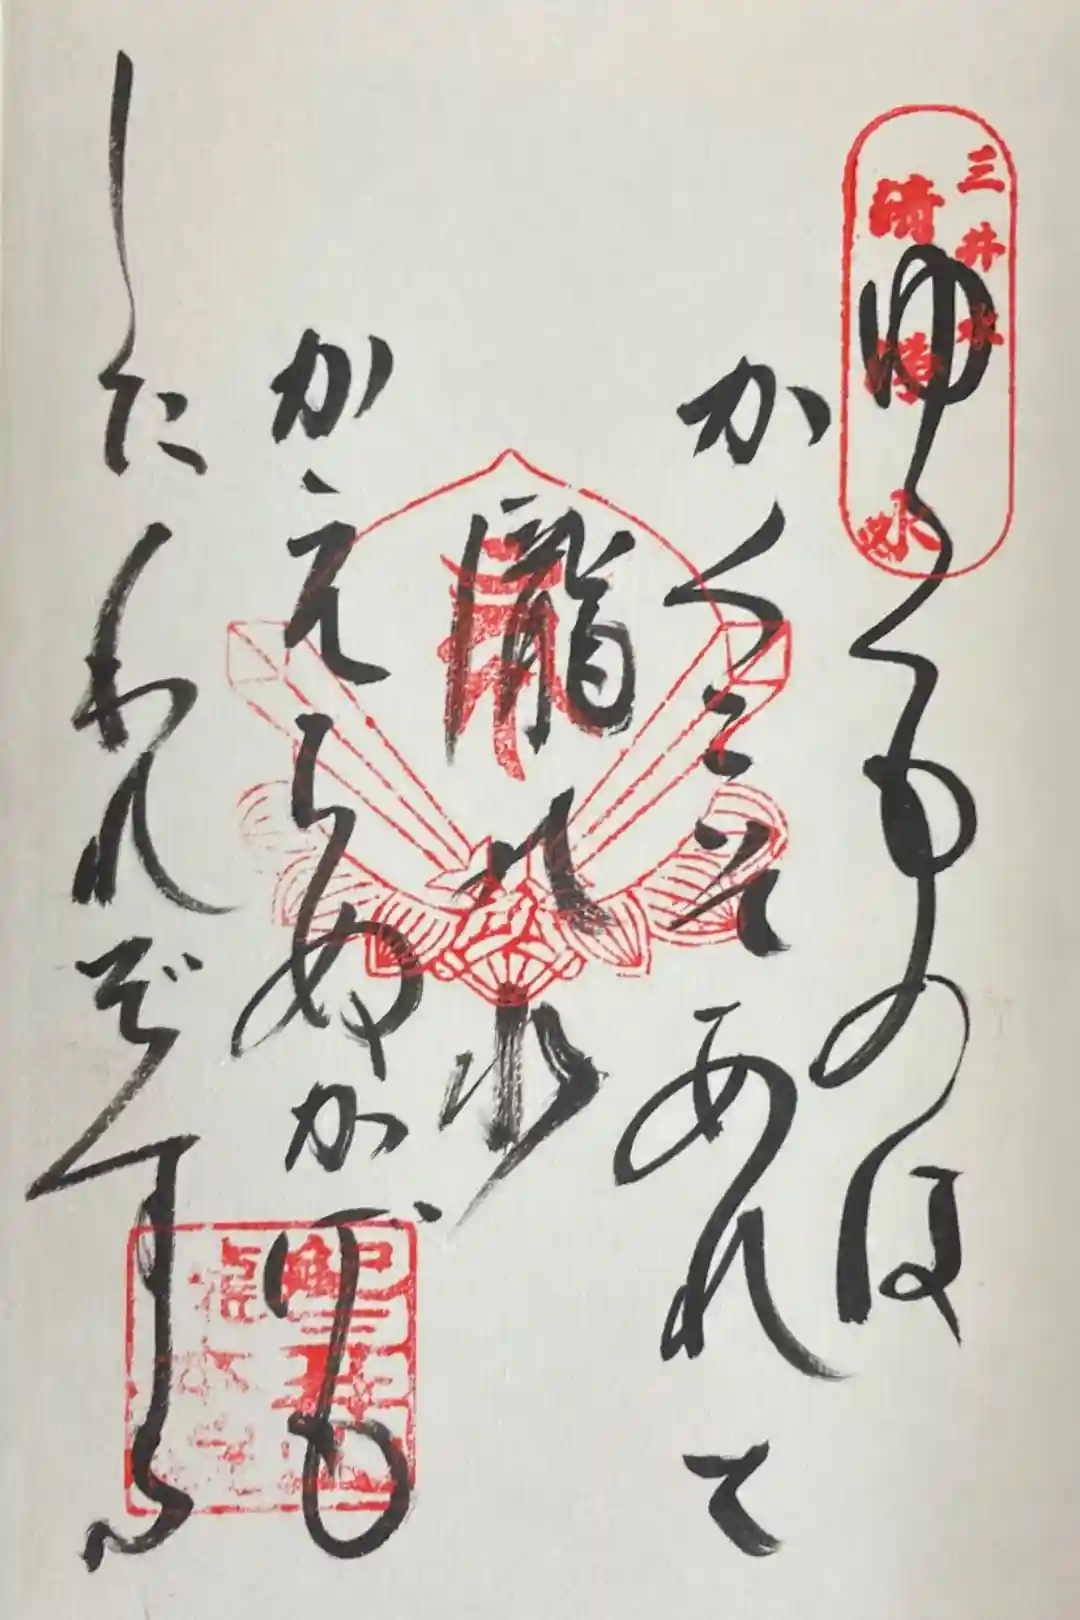 三井水
清浄水
ゆくものは
かくこそあれて
瀧之水
かえらぬかげも
したわれぞする
紀三井寺